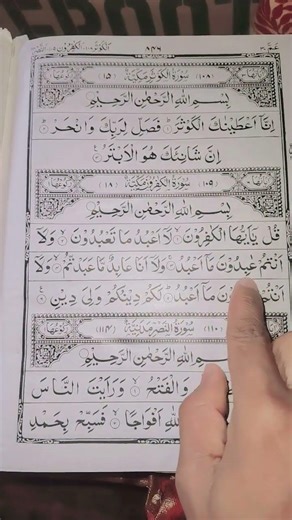 ٨٢٦
(١٠٨) سُوْرَةُ الْكَوْثَرِ مَكِّيَّةٌ (١٥)
بِسْمِ اللهِ الرَّحْمٰنِ الرَّحِيْمِ
اِنَّاۤ اَعْطَيْنٰكَ الْكَوْثَرَ ؕ فَصَلِّ لِرَبِّكَ وَانْحَرْ ؕ
اِنَّ شَانِئَكَ هُوَ الْاَبْتَرُ
سُوْرَةُ الْكٰفِرُوْنَ مَكِّيَّةٌ (١٨)
بِسْمِ اللهِ الرَّحْمٰنِ الرَّحِيْمِ
قُلْ يٰۤاَيُّهَا الْكٰفِرُوْنَ ۙ لَاۤ اَعْبُدُ مَا تَعْبُدُوْنَ ۙ وَلَاۤ
اَنْتُمْ عٰبِدُوْنَ مَاۤ اَعْبُدُ ۚ وَلَاۤ اَنَا عَابِدٌ مَّا عَبَدْتُّمْ ۙ وَلَاۤ
اَنْتُمْ مَاۤ اَعْبُدُ ؕ لَكُمْ دِيْنُكُمْ وَلِىَ دِيْنِ
(١١٠) سُوْرَةُ النَّصْرِ مَدَنِيَّةٌ (١١٤)
اللهِ الرَّحْمٰنِ الرَّحِيْمِ
وَالْفَتْحُ ۙ وَرَاَيْتَ النَّاسَ
اللهِ اَفْوَاجًا ۙ فَسَبِّحْ بِحَمْدِ